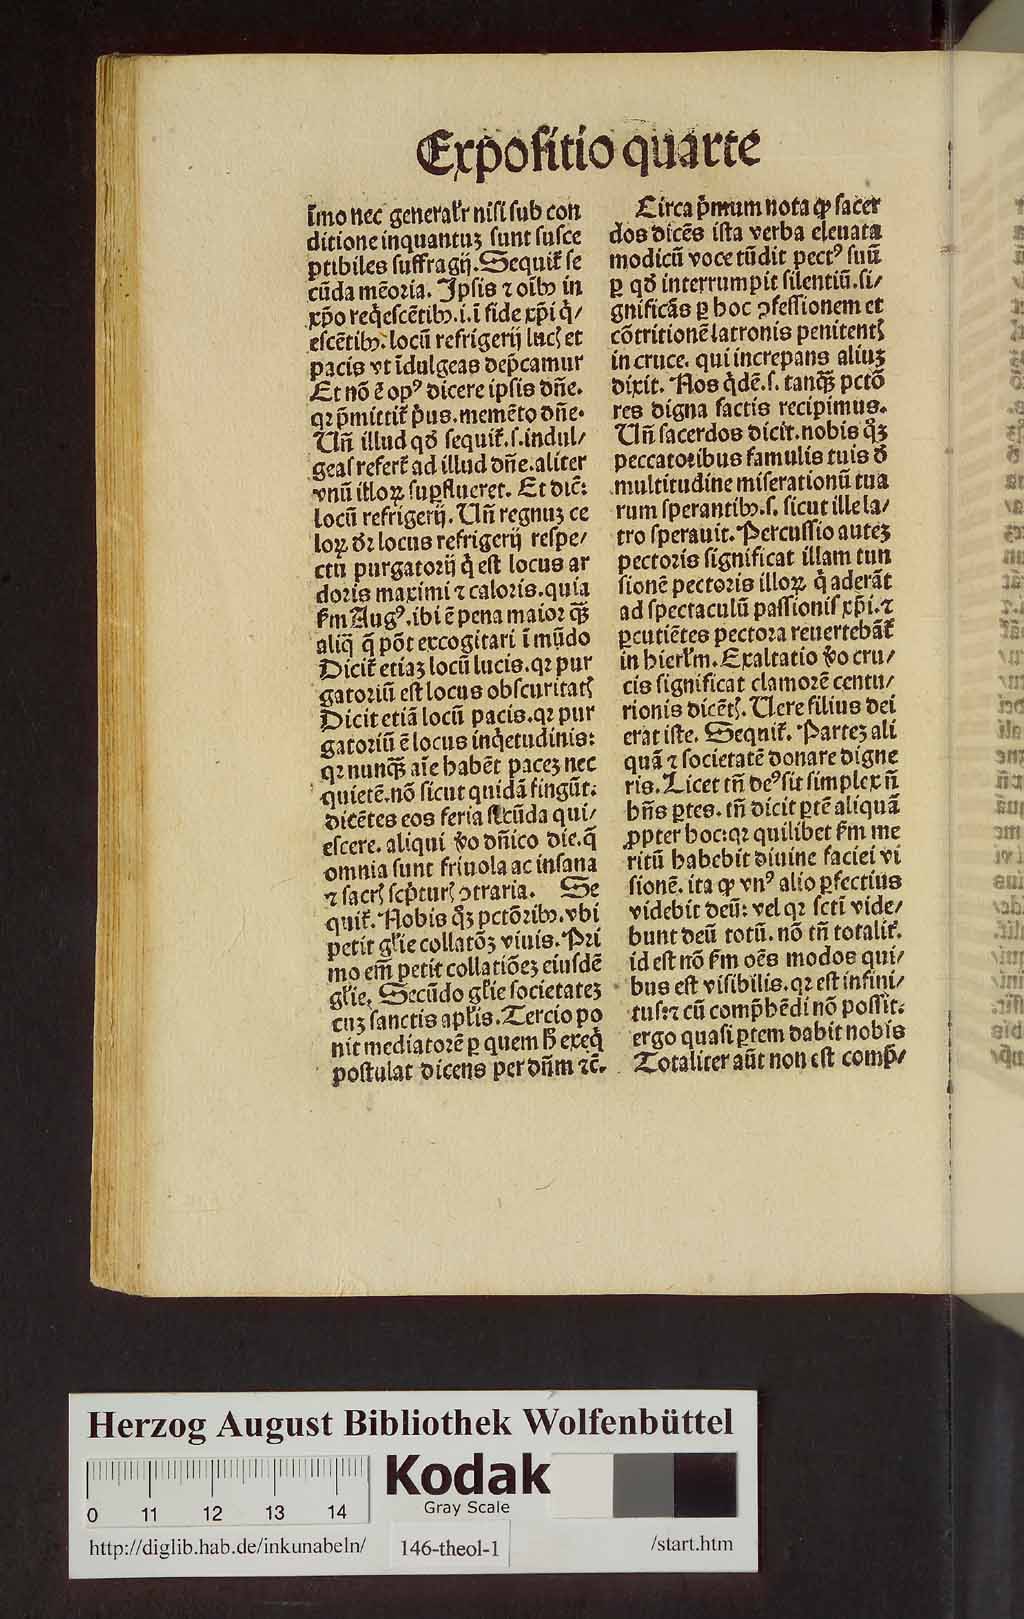 Expositio quarte
īmo nec generaľr niſi ſub con
ditione inquantuꝫ ſunt ſuſce
ptibiles ſuffragij. Sequit̃ ſe
cũda mẽoria. Ipſis ⁊ oĩbꝰ in
xp̃o reqͥeſcẽtibꝰ.i.ĩ fide xp̃i qͥ/
eſcẽtibꝰ. locũ refrigerij lucꝭ et
pacis vt ĩdulgeas dep̃camur
Et nõ ẽ opꝰ dicere ipſis dñe.
qꝛ p̃mittit̃ pͥus. memẽto dñe.
Uñ illud qď ſequit̃.ſ.indul/
geaſ refert̃ ad illud dñe. aliter
vnũ illoꝝ ſuꝑflueret. Et dic̃:
locũ refrigerij. Uñ regnuꝫ ce
loꝝ ďꝛ locus refrigerij reſpe/
ctu purgatorij qͥ eſt locus ar
doris maximi ⁊ caloris. quia
ẜm Augꝰ. ibi ẽ pena maior qꝫ̃
aliq̃ q̃ põt excogitari ĩ mũdo
Dicit̃ etiaꝫ locũ lucis. qꝛ pur
gatoriũ eſt locus obſcuritatꝭ
Dicit etiã locũ pacis. qꝛ pur
gatoriũ ẽ locus inqͥetudinis:
qꝛ nunqꝫ̃ aĩe habẽt paceꝫ nec
quietẽ. nõ ſicut quidã fingũt:
dicẽtes eos feria ſecũda qui/
eſcere. aliqui ꝟo dñico die. q̃
omnia ſunt friuola ac inſana
⁊ ſacrꝭ ſcp̃turꝭ ↄtraria. Se
quit̃. Nobis qͦꝫ pctõribꝰ. vbi
petit gľie collatõꝫ viuis. Pri
mo em̃ petit collatiõeꝫ eiuſdẽ
gľie. Secũdo gľie ſocietateꝫ
cuꝫ ſanctis apľis. Tercio po
nit mediatorẽ ꝑ quem h̃ exeqͥ
poſtulat dicens per dñm ⁊c̃.
Circa p̃mum nota ꝙ ſacer
dos dicẽs iſta verba eleuata
modicũ voce tũdit pectꝰ ſuũ
ꝑ qď interrumpit ſilentiũ. ſi/
gnificãs ꝑ hoc ↄfeſſionem et
cõtritionẽ latronis penitentꝭ
in cruce. qui increpans aliuꝫ
dixit. Nos qͥdẽ.ſ. tanqꝫ̃ pctõ
res digna factis recipimus.
Uñ ſacerdos dicit. nobis qͦꝫ
peccatoribus famulis tuis ď
multitudine miſerationũ tua
rum ſperantibꝰ.ſ. ſicut ille la/
tro ſperauit. Percuſſio auteꝫ
pectoris ſignificat illam tun
ſionẽ pectoris illoꝝ qͥ aderãt
ad ſpectaculũ paſſioniſ xp̃i.⁊
ꝑcutiẽtes pectora reuertebãt̃
in hierľm. Exaltatio ꝟo cru/
cis ſignificat clamorẽ centu/
rionis dicẽtꝭ. Uere filius dei
erat iſte. Sequit̃. Parteꝫ ali
quã ⁊ ſocietatẽ donare digne
ris. Licet tñ deꝰ ſit ſimplex ñ
hñs ꝑtes. tñ dicit ꝑtẽ aliquã
ꝓpter hoc: qꝛ quilibet ẜm me
ritũ habebit diuine faciei vi
ſionẽ. ita ꝙ vnꝰ alio ꝑfectius
videbit deũ: vel qꝛ ſcti vide/
bunt deũ totũ. nõ tñ totalit̃.
id eſt nõ ẜm oẽs modos qui/
bus eſt viſibilis. qꝛ eſt infini/
tus:⁊ cũ comp̃hẽdi nõ poſſit:
ergo quaſi ꝑtem dabit nobis
Totaliter aũt non eſt comp̃/
Herzog August Bibliothek Wolfenbüttel
0 11 12 13 14
Kodak
Gray Scale
http://diglib.hab.de/inkunabeln/ 146-theol-1 /start.htm